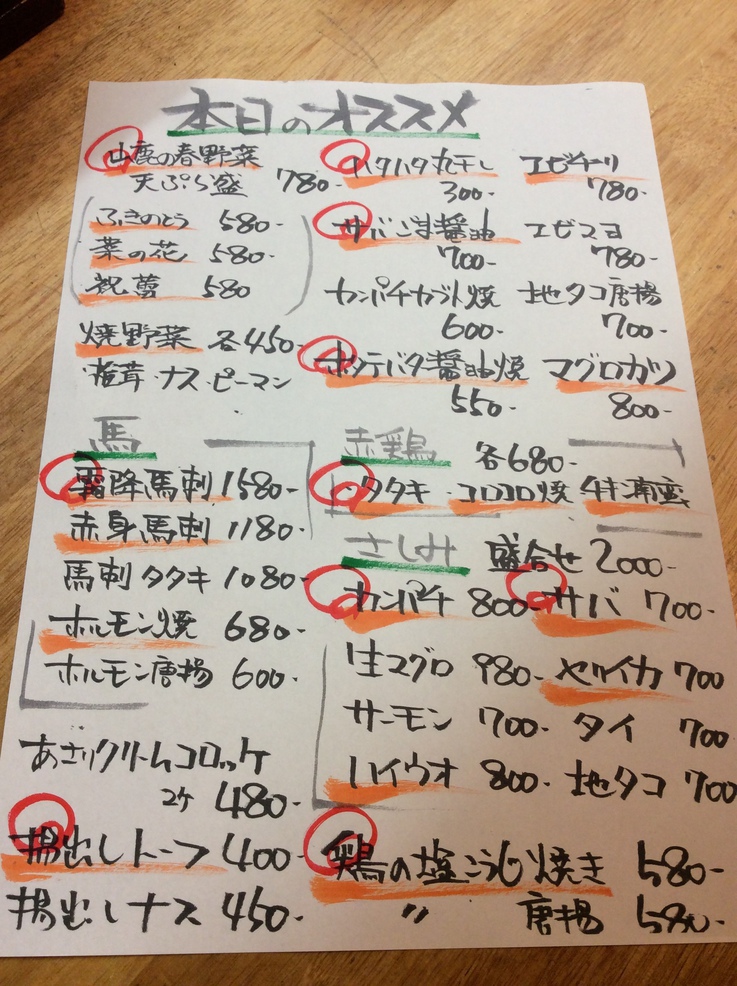 本日のオススメ
山鹿の春野菜
天ぷら盛 780-
ふきのとう 580-
菜の花 580-
祝蕾 580
焼野菜 各450-
椎茸・ナス・ピーマン
馬
霜降馬刺 1580-
赤身馬刺 1180-
馬刺タタキ 1080-
ホルモン焼 680-
ホルモン唐揚 600-
あさりクリームコロッケ
2ケ 480-
揚出しトーフ 400-
揚出しナス 450-
ハタハタ丸干し
300-
サバごま醤油
700-
カンパチカブト焼
600-
ホタテバタ醤油焼
550-
エビチーリ
780-
エビマヨ
780-
地タコ唐揚
700-
マグロカツ
800-
赤鶏 各680-
タタキ コロコロ焼 チキン南蛮
さしみ 盛合せ 2000-
カンパチ 800- サバ 700-
生マグロ 980- ヤリイカ 700
サーモン 700- タイ 700
ハイウオ 800- 地タコ 700
鶏の塩こうじ焼き 580-
〃 唐揚 580-